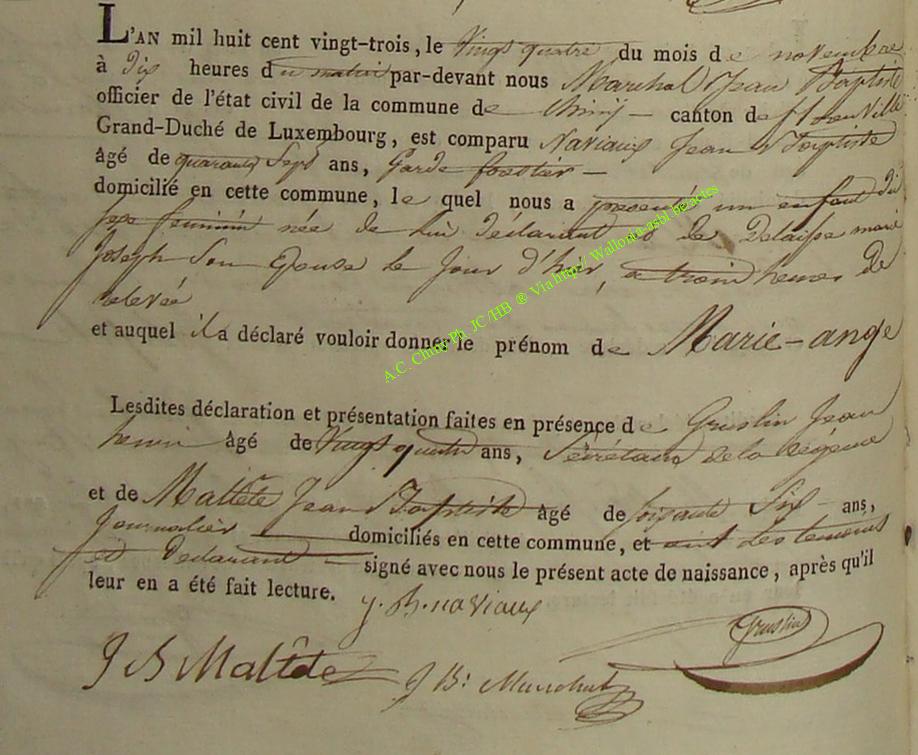 L'AN mil huit cent vingt-trois, le Vingt quatre du mois de novembre
à dix heures du matin par-devant nous Marchal Jean Baptiste
officier de l'état civil de la commune de Chiny canton de florenville
Grand-Duché de Luxembourg, est comparu Naviaux Jean Baptiste
âgé de quarante Sept ans, Garde forestier
domicilié en cette commune, le quel nous a presenté un enfant du
sexe feminin née de lui déclarant & de Delaisse marie
Joseph Son Epouse le Jour d'hier, a trois heures de
relevée
et auquel il a déclaré vouloir donner le prénom de Marie-ange
Lesdites déclaration et présentation faites en présence de Gruslin Jean
henri âgé de Vingt quatre ans, Sécrétaire de la Regence
et de Maltête Jean Baptiste âgé de soixante Six ans,
Journalier domiciliés en cette commune, et ont les temoins
et Declarant signé avec nous le présent acte de naissance, après qu'il
leur en a été fait lecture.
j. B. naviaux
Gruslin
J B Maltête
J Bt Marchal
A.C. Chiny Ph. JC/HB ® Via http// Wallonia-asbl.be/actes